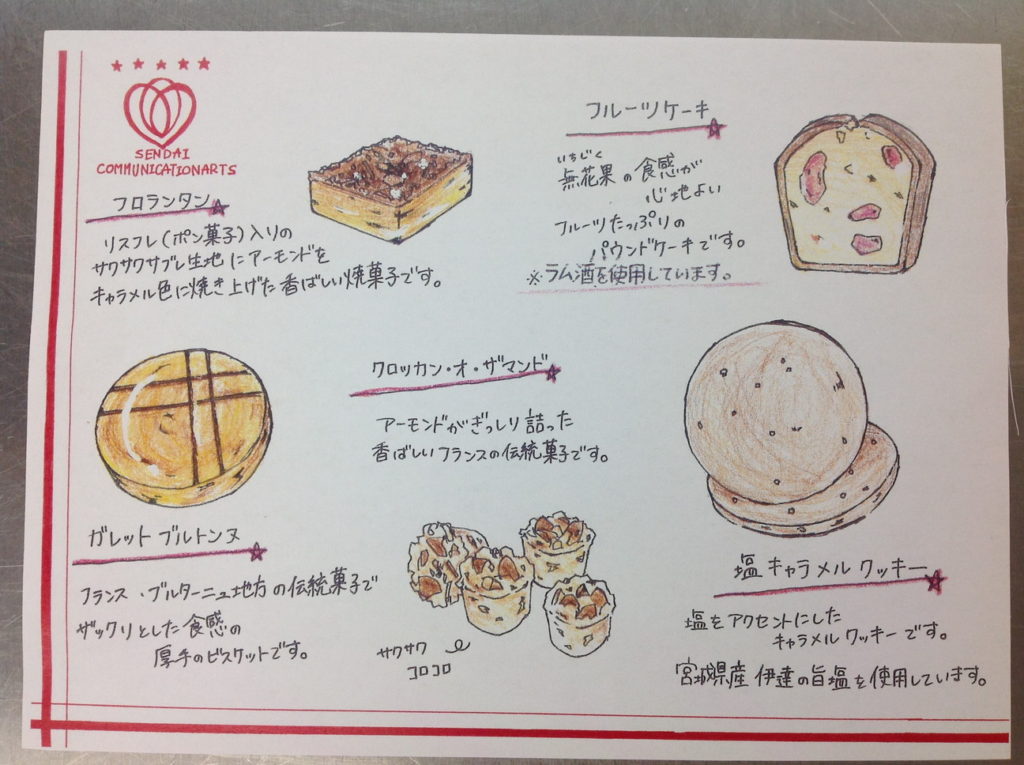 SENDAI
COMMUNICATIONARTS
フロランタン
リスフレ(ポン菓子)入りの
サクサクサブレ生地にアーモンドを
キャラメル色に焼き上げた香ばしい焼菓子です。
フルーツケーキ
いちじく
無花果の食感が
心地よい
フルーツたっぷりの
パウンドケーキです。
※ラム酒を使用しています。
クロッカン・オ・ザマンド
アーモンドがぎっしり詰った
香ばしいフランスの伝統菓子です。
ガレットブルトンヌ
フランス・ブルターニュ地方の伝統菓子で
ザックリとした食感の
厚手のビスケットです。
サクサク
コロコロ
塩キャラメルクッキー
塩をアクセントにした
キャラメルクッキーです。
宮城県産 伊達の旨塩を使用しています。